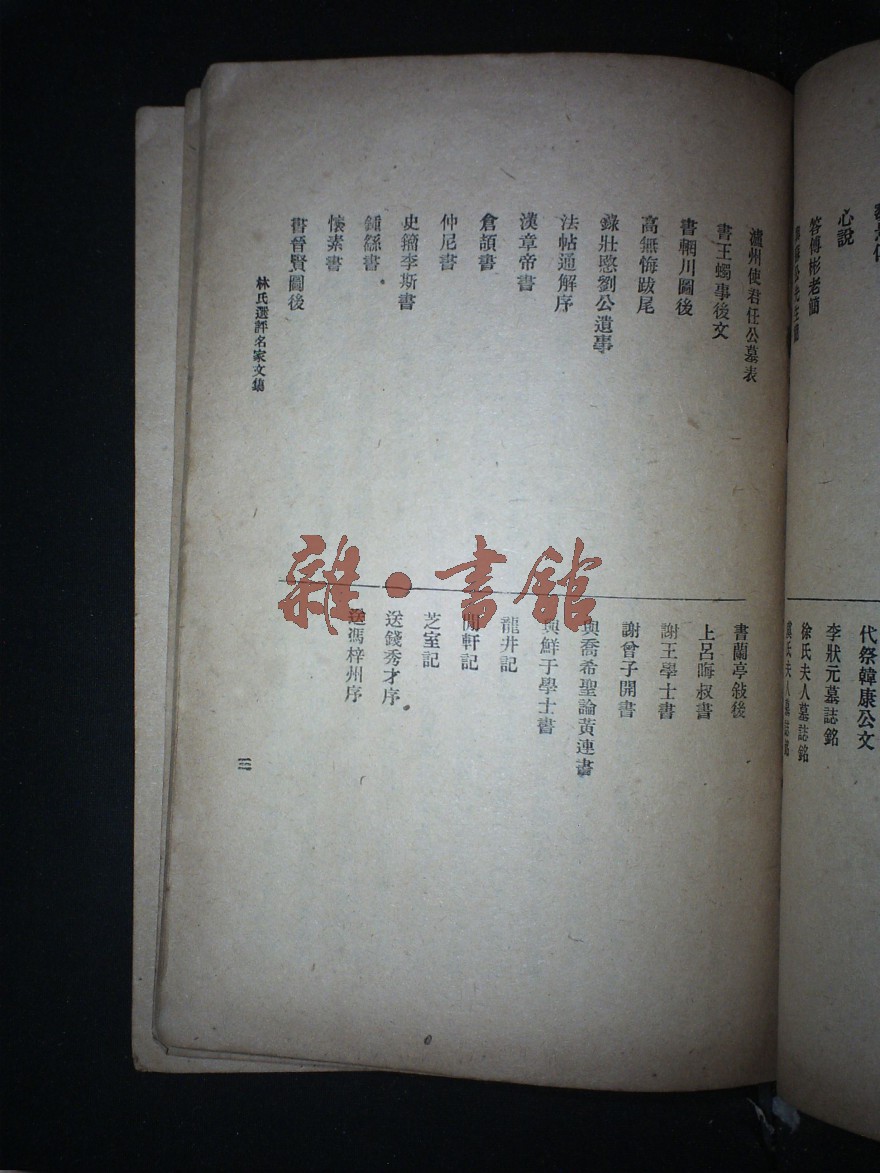 心說
答傅彬老簡
代祭韓康公文
李狀元墓誌銘
徐氏夫人墓誌銘
瀘州使君任公墓表
書王蠋事後文
書輞川圖後
高無悔跋尾
錄壯愍劉公遺事
法帖通解序
漢章帝書
倉頡書
仲尼書
史籀李斯書
鍾繇書
懷素書
書晉賢圖後
書蘭亭敍後
上呂晦叔書
謝王學士書
謝曾子開書
與喬希聖論黃連書
與鮮于學士書
龍井記
閒軒記
芝室記
送錢秀才序
送馮梓州序
林氏選評名家文集
三
雜·書館